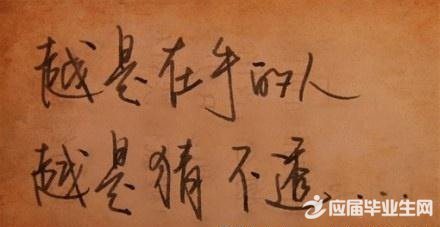 越是在乎的人
越是猜不透....
应届毕业生网